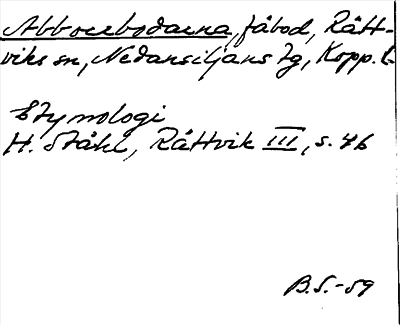 Abborrbodarna, fäbod, Rätt-
viks sn, Nedansiljans tg, Kopp. l.
Etymologi
H. Ståhl, Rättvik III, s. 46
B.S.-59